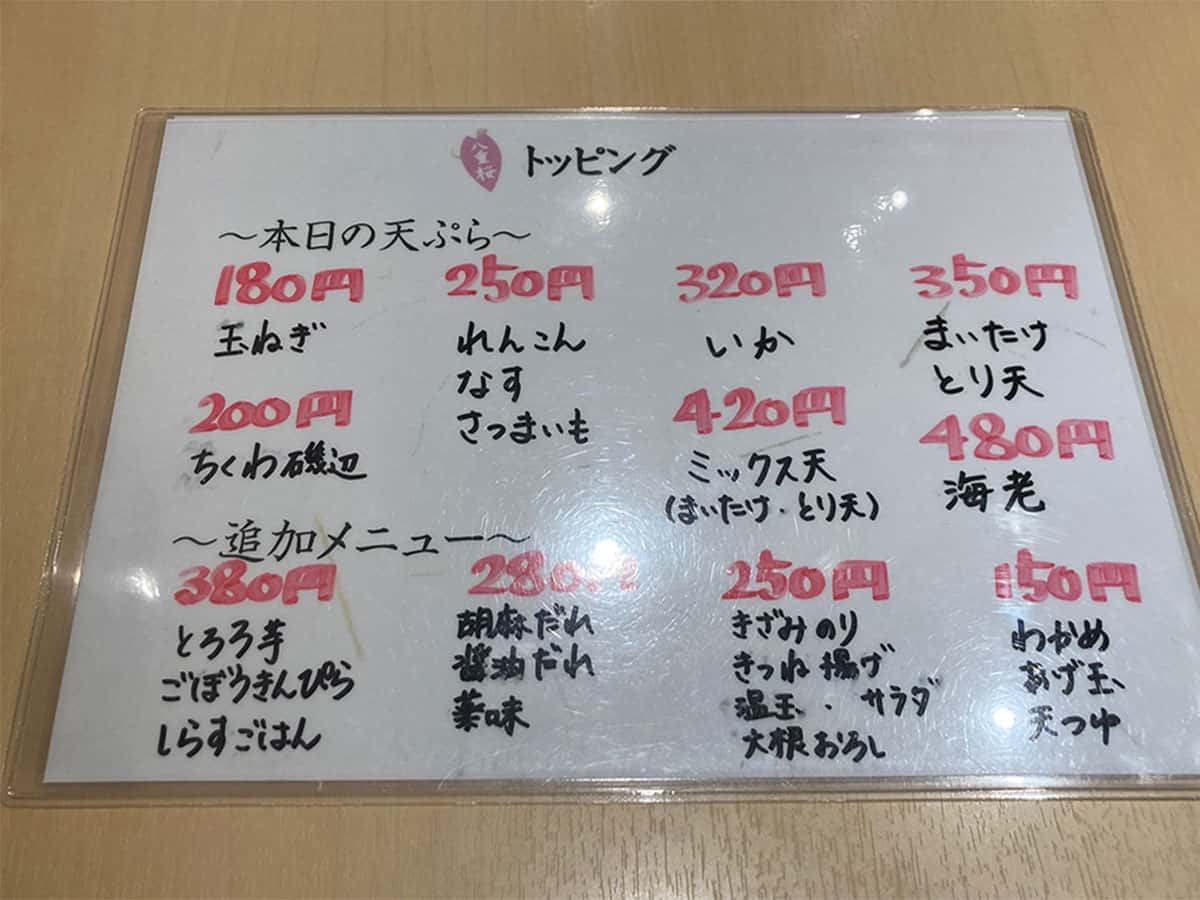 八重桜
トッピング
～本日の天ぷら～
180円
玉ねぎ
200円
ちくわ磯辺
250円
れんこん
なす
さつまいも
320円
いか
420円
ミックス天
(まいたけ・とり天)
350円
まいたけ
とり天
480円
海老
～追加メニュー～
380円
とろろ芋
ごぼうきんぴら
しらすごはん
280円
胡麻だれ
醤油だれ
薬味
250円
きざみのり
きつね揚げ
温玉・サラダ
大根おろし
150円
わかめ
あげ玉
天つゆ